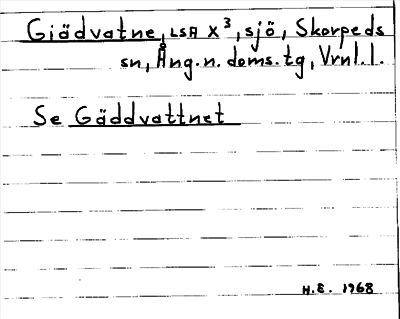 Giädvatne, LSA X³, sjö, Skorpeds
sn, Ång. n. doms. tg, Vrnl. l.
Se Gäddvattnet
H.E. 1968